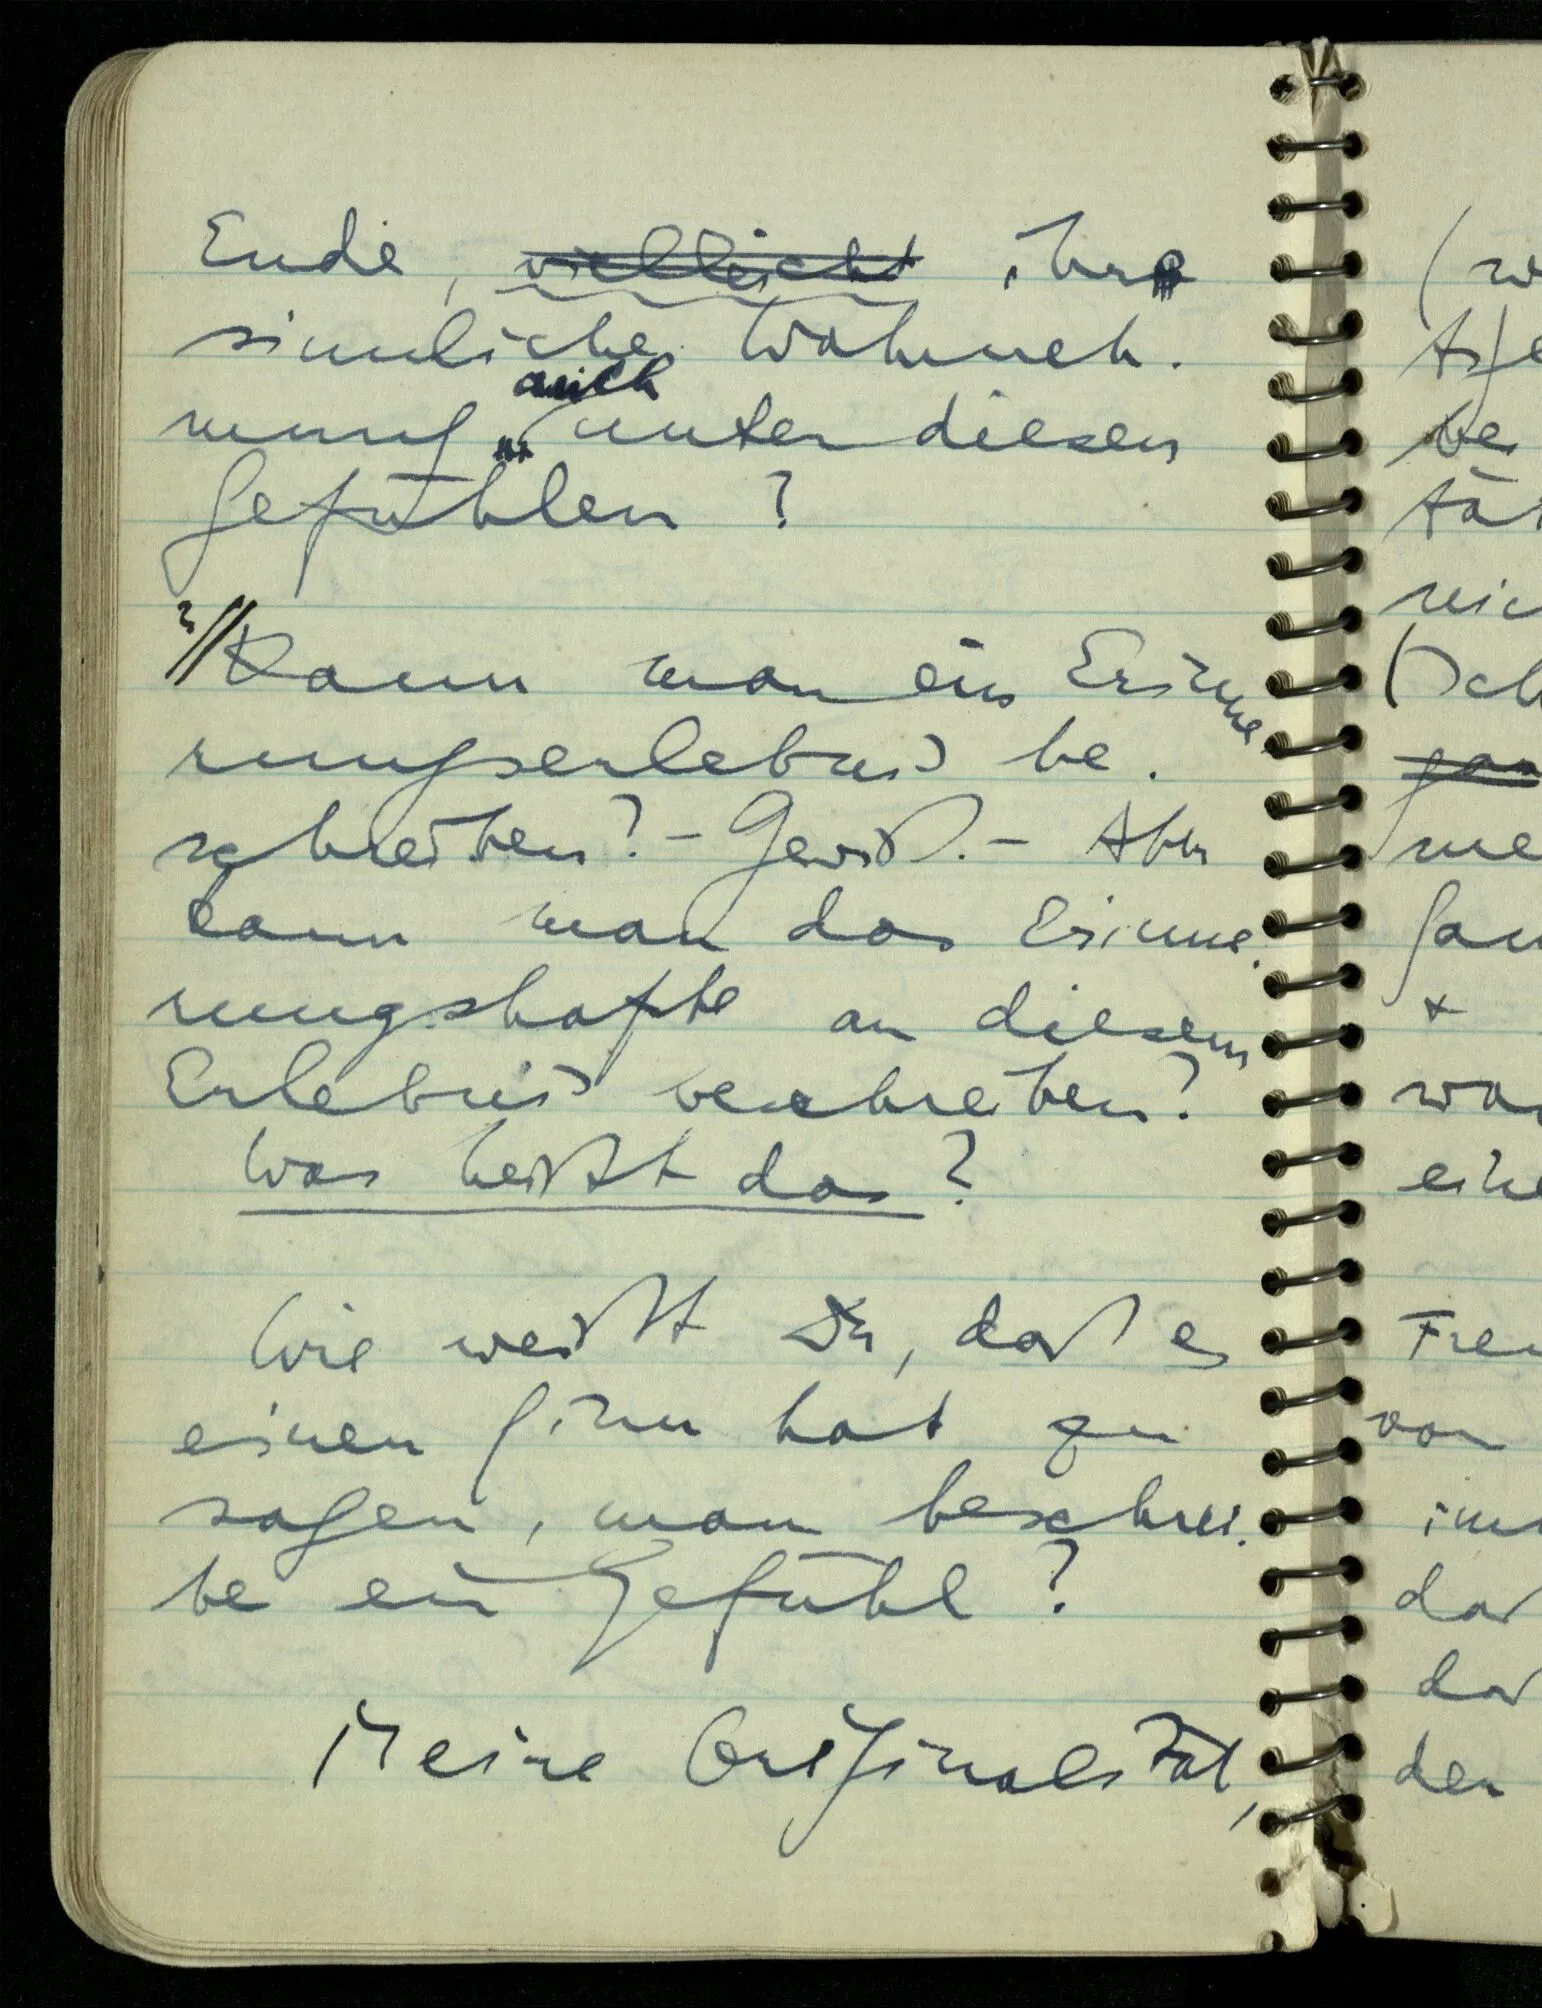 Ende, vielleicht ihre
sinnliche Wahrneh-
mung auch unter diesen
Gefühlen?
?// Kann man ein Erinne-
rungserlebnis be-
schreiben? – Gewiß. – Aber
kann man das Erinne-
rungshafte an diesem
Erlebnis beschreiben?
Was heißt das?
Wie weißt Du, daß es
einen Sinn hat zu
sagen, man beschrei-
be ein Gefühl?
Meine Originalität,